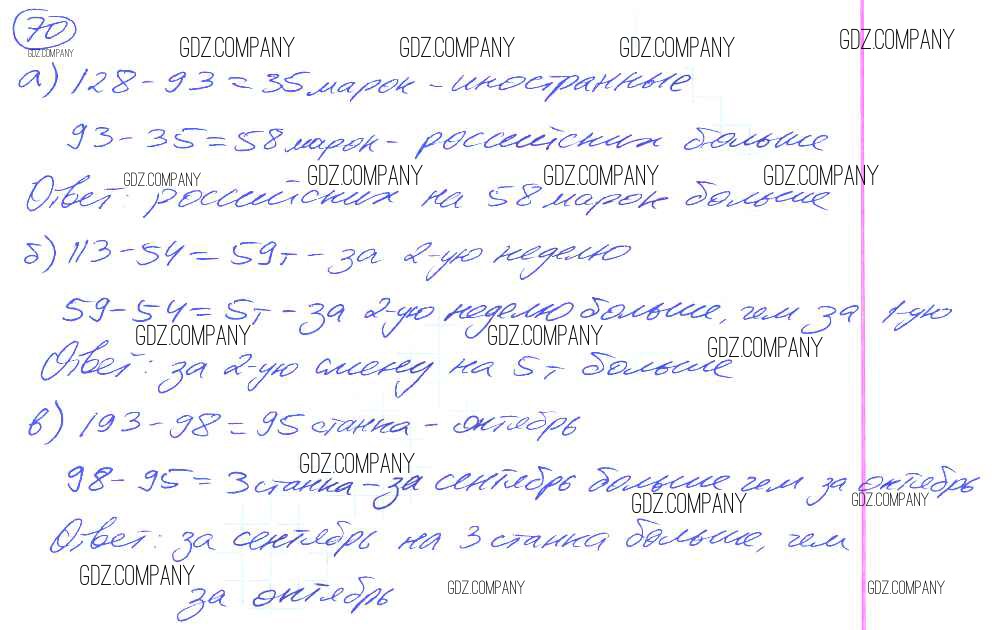 70
GDZ.COMPANY GDZ.COMPANY GDZ.COMPANY GDZ.COMPANY GDZ.COMPANY
а) 128 - 93 = 35 марок - иностранные
93 - 35 = 58 марок - российских больше
GDZ.COMPANY GDZ.COMPANY GDZ.COMPANY GDZ.COMPANY
Ответ: российских на 58 марок больше
б) 113 - 54 = 59т - за 2-ую неделю
59 - 54 = 5т - за 2-ую неделю больше, чем за 1-ую
GDZ.COMPANY GDZ.COMPANY GDZ.COMPANY
Ответ: за 2-ую смену на 5т больше
в) 193 - 98 = 95 станка - октябрь
GDZ.COMPANY
98 - 95 = 3 станка - за сентябрь больше чем за октябрь
GDZ.COMPANY GDZ.COMPANY
Ответ: за сентябрь на 3 станка больше, чем
GDZ.COMPANY GDZ.COMPANY GDZ.COMPANY
за октябрь